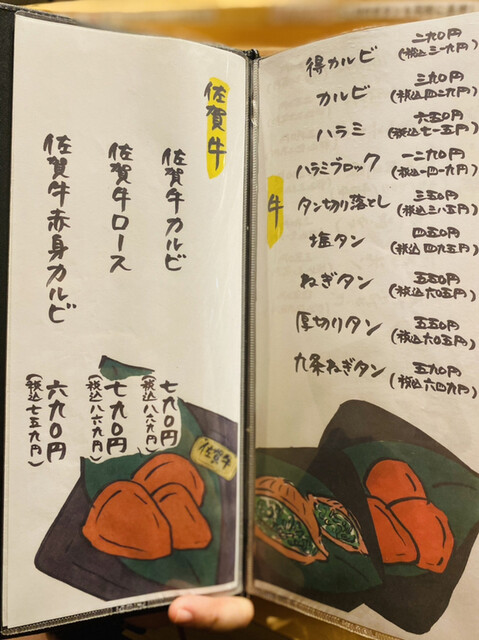 佐賀牛
佐賀牛カルビ 七九〇円
(税込八六九円)
佐賀牛ロース 七九〇円
(税込八六九円)
佐賀牛赤身カルビ 六九〇円
(税込七五九円)
佐賀牛
牛
得カルビ 二九〇円
(税込三一九円)
カルビ 三九〇円
(税込四二九円)
ハラミ 六五〇円
(税込七一五円)
ハラミブロック 一二九〇円
(税込一四一九円)
タン切り落とし 三五〇円
(税込三八五円)
塩タン 四五〇円
(税込四九五円)
ねぎタン 五五〇円
(税込六〇五円)
厚切りタン 五五〇円
(税込六〇五円)
九条ねぎタン 五九〇円
(税込六四九円)